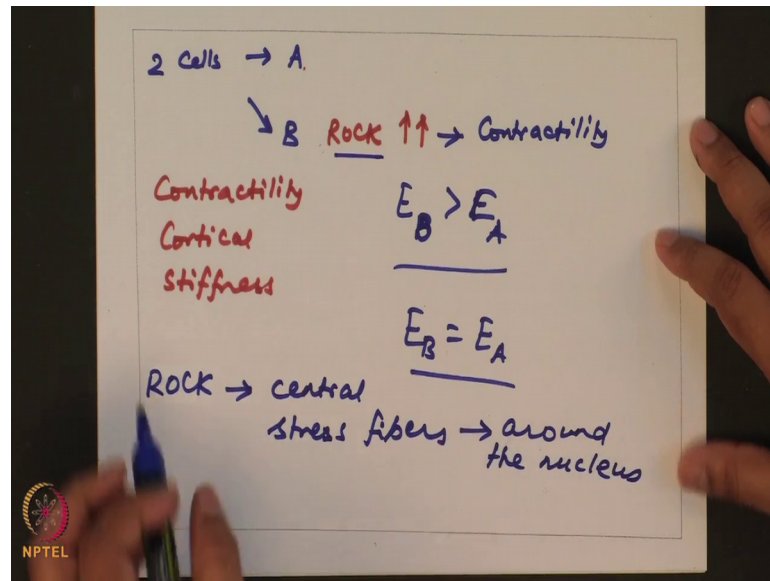 2 Cells → A.
↘ B ROCK ↑↑ → Contractility
Contractility
Cortical
Stiffness
E_B > E_A
E_B = E_A
ROCK → central
stress fibers → around
the nucleus
NPTEL